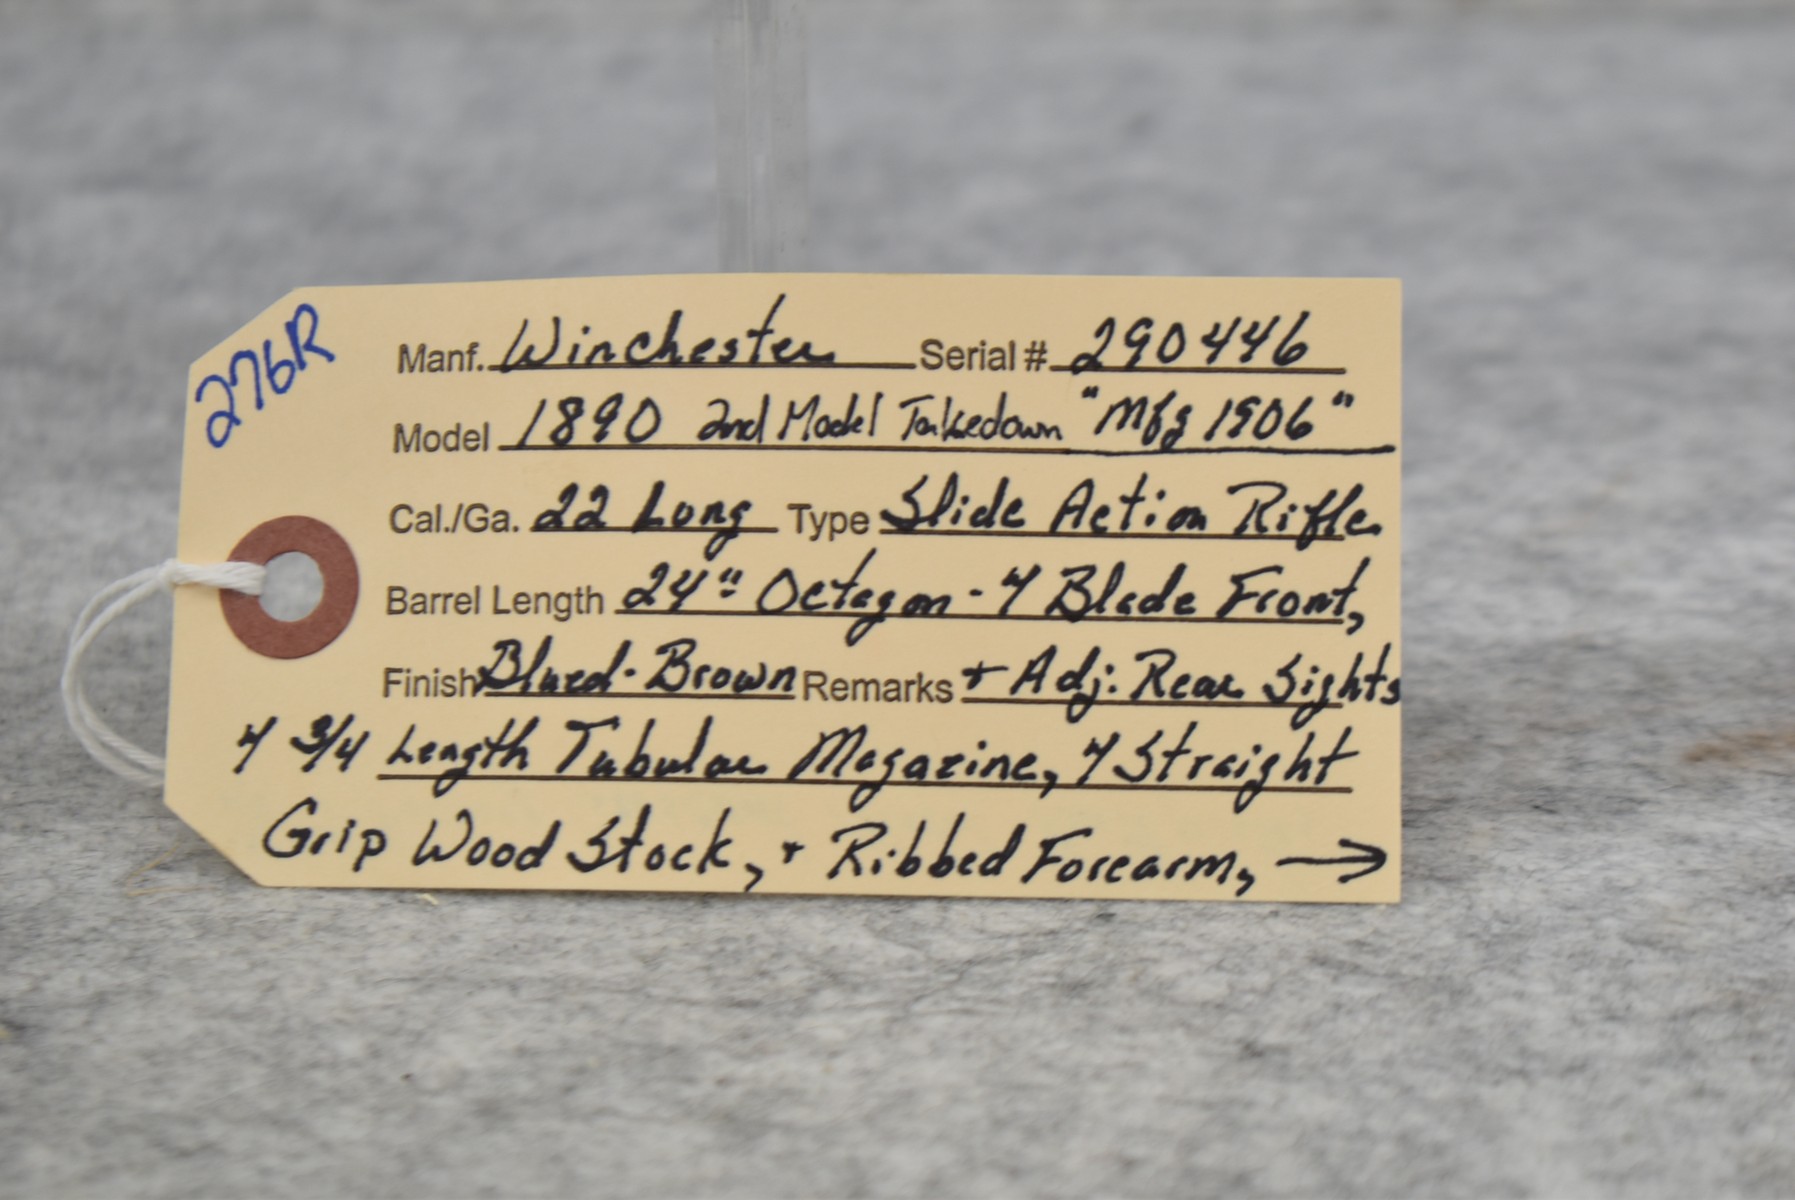 276R
Manf. Winchester Serial # 290446
Model 1890 2nd Model Takedown "Mfg 1906"
Cal./Ga. 22 Long Type Slide Action Rifle
Barrel Length 24" Octagon - w/ Blade Front,
Finish Blued-Brown Remarks + Adj. Rear Sights
w/ 3/4 Length Tubular Magazine, w/ Straight
Grip Wood Stock, + Ribbed Forearm, →